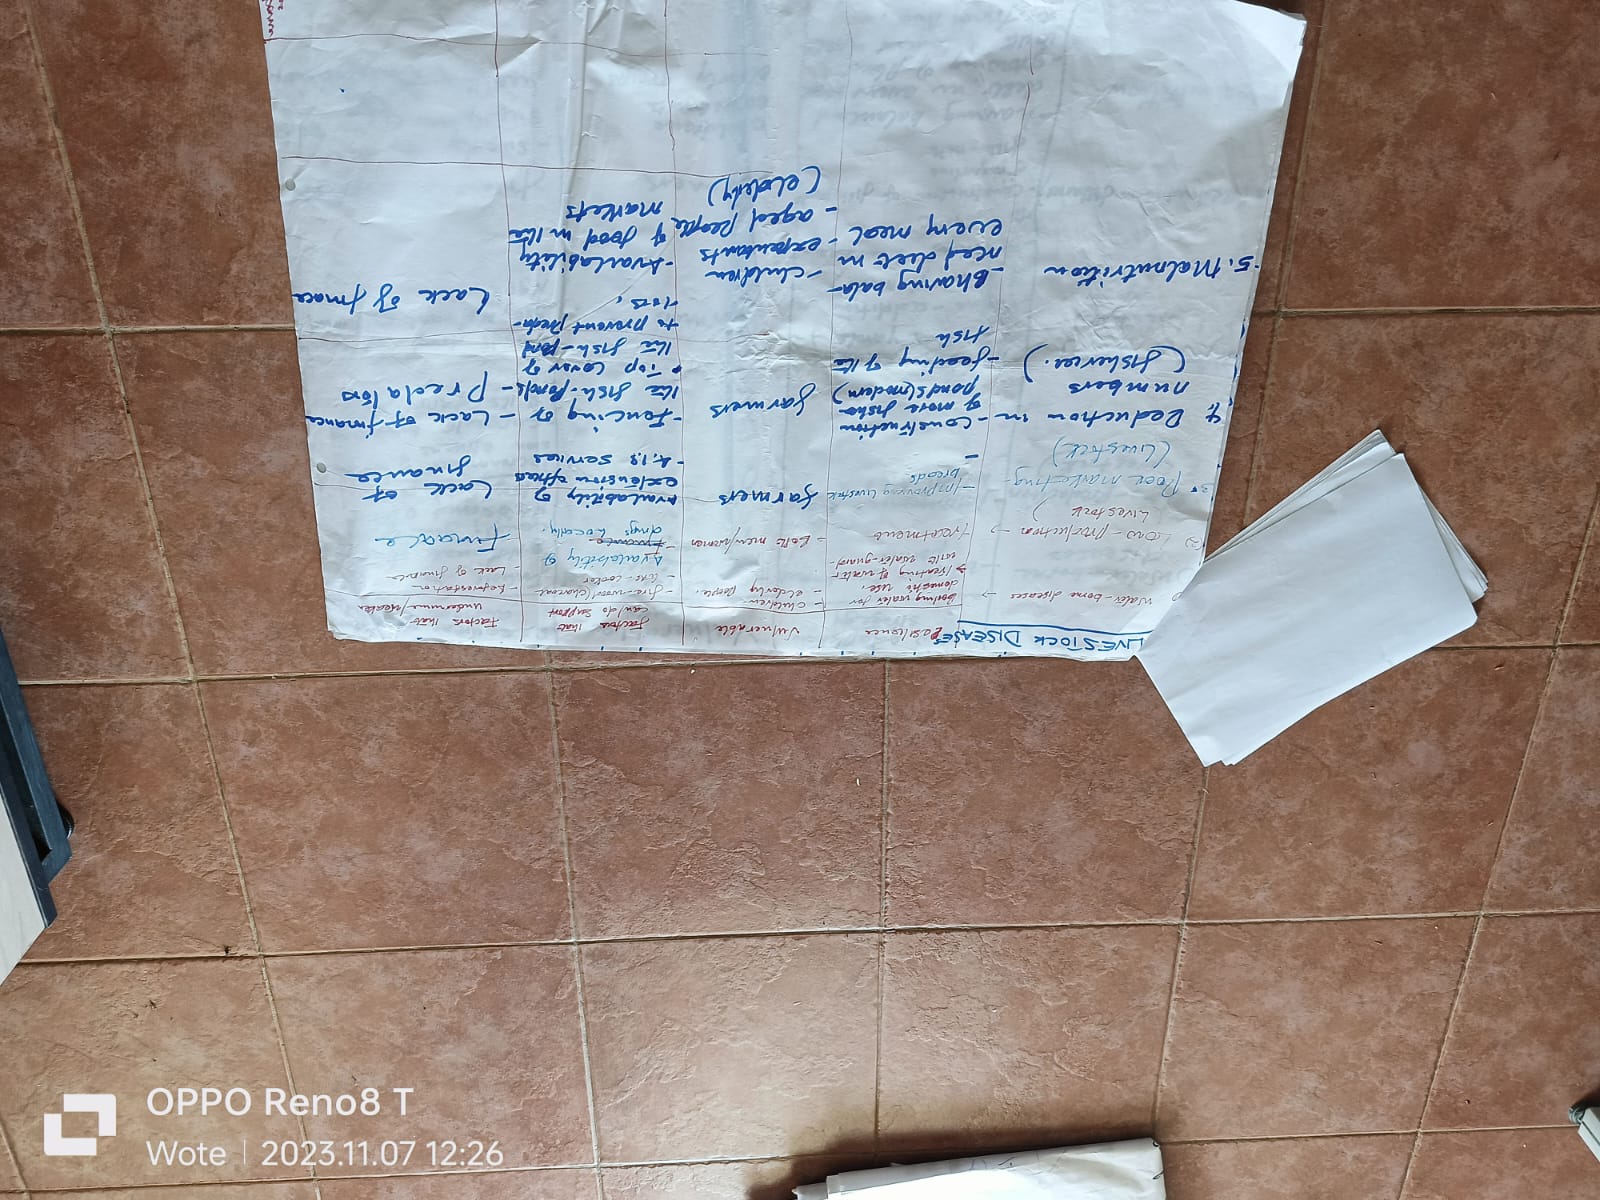 LIVESTOCK DISEASES
Resilience
Vulnerable
Factors that
can/do support
Factors that
undermine/weaken
1) Water-bone diseases →
boiling water for
domestic use.
→ treating of water
with water-guard.
- children
- elderly people.
- fire-wood/charcoal
- Lack of finance
2) Low-production →
Livestock)
treatment
- Both men/women
Availability of
drugs locally.
Finance
3. Poor marketing -
(Livestock)
- Improving livestock
breeds
-
farmers
Availability of
extension offices
- A.I.S services
Lack of
finance
4. Reduction in
numbers
(fisheries.)
- Construction
of more fish
ponds (modern)
- feeding of the
fish
farmers
- Fencing of
the fish-ponds
• Top cover of
the fish-pond
to prevent preda-
tors.
- Lack of finance
- Predators
5. Malnutrition
- Bhaving bala-
nced diet in
every meal
- children
- expectants
- aged people
(elderly)
- Availability
of food in the
markets
Lack of finace
OPPO Reno8 T
Wote | 2023.11.07 12:26